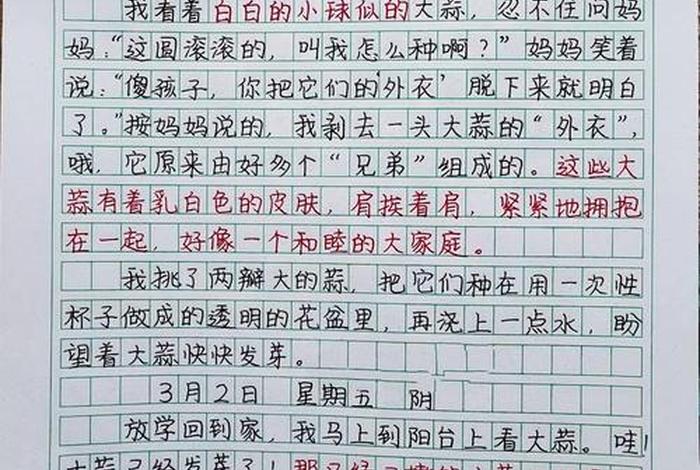 我看着白白的小球似的大蒜，忍不住问妈
妈："这圆滚滚的，叫我怎么种啊？"妈妈笑着
说："傻孩子，你把它们的'外衣'脱下来就明白
了。"按妈妈说的，我剥去一头大蒜的"外衣"，
哦，它原来由好多个"兄弟"组成的。这些大
蒜有着乳白色的皮肤，肩挨着肩，紧紧地拥抱
在一起，好像一个和睦的大家庭。
我挑了两瓣大的蒜，把它们种在用一次性
杯子做成的透明的花盆里，再浇上一点水，盼
望着大蒜快快发芽。
3月2日 星期五 阴
放学回到家，我马上到阳台上看大蒜。哇！
大蒜已经发芽了！